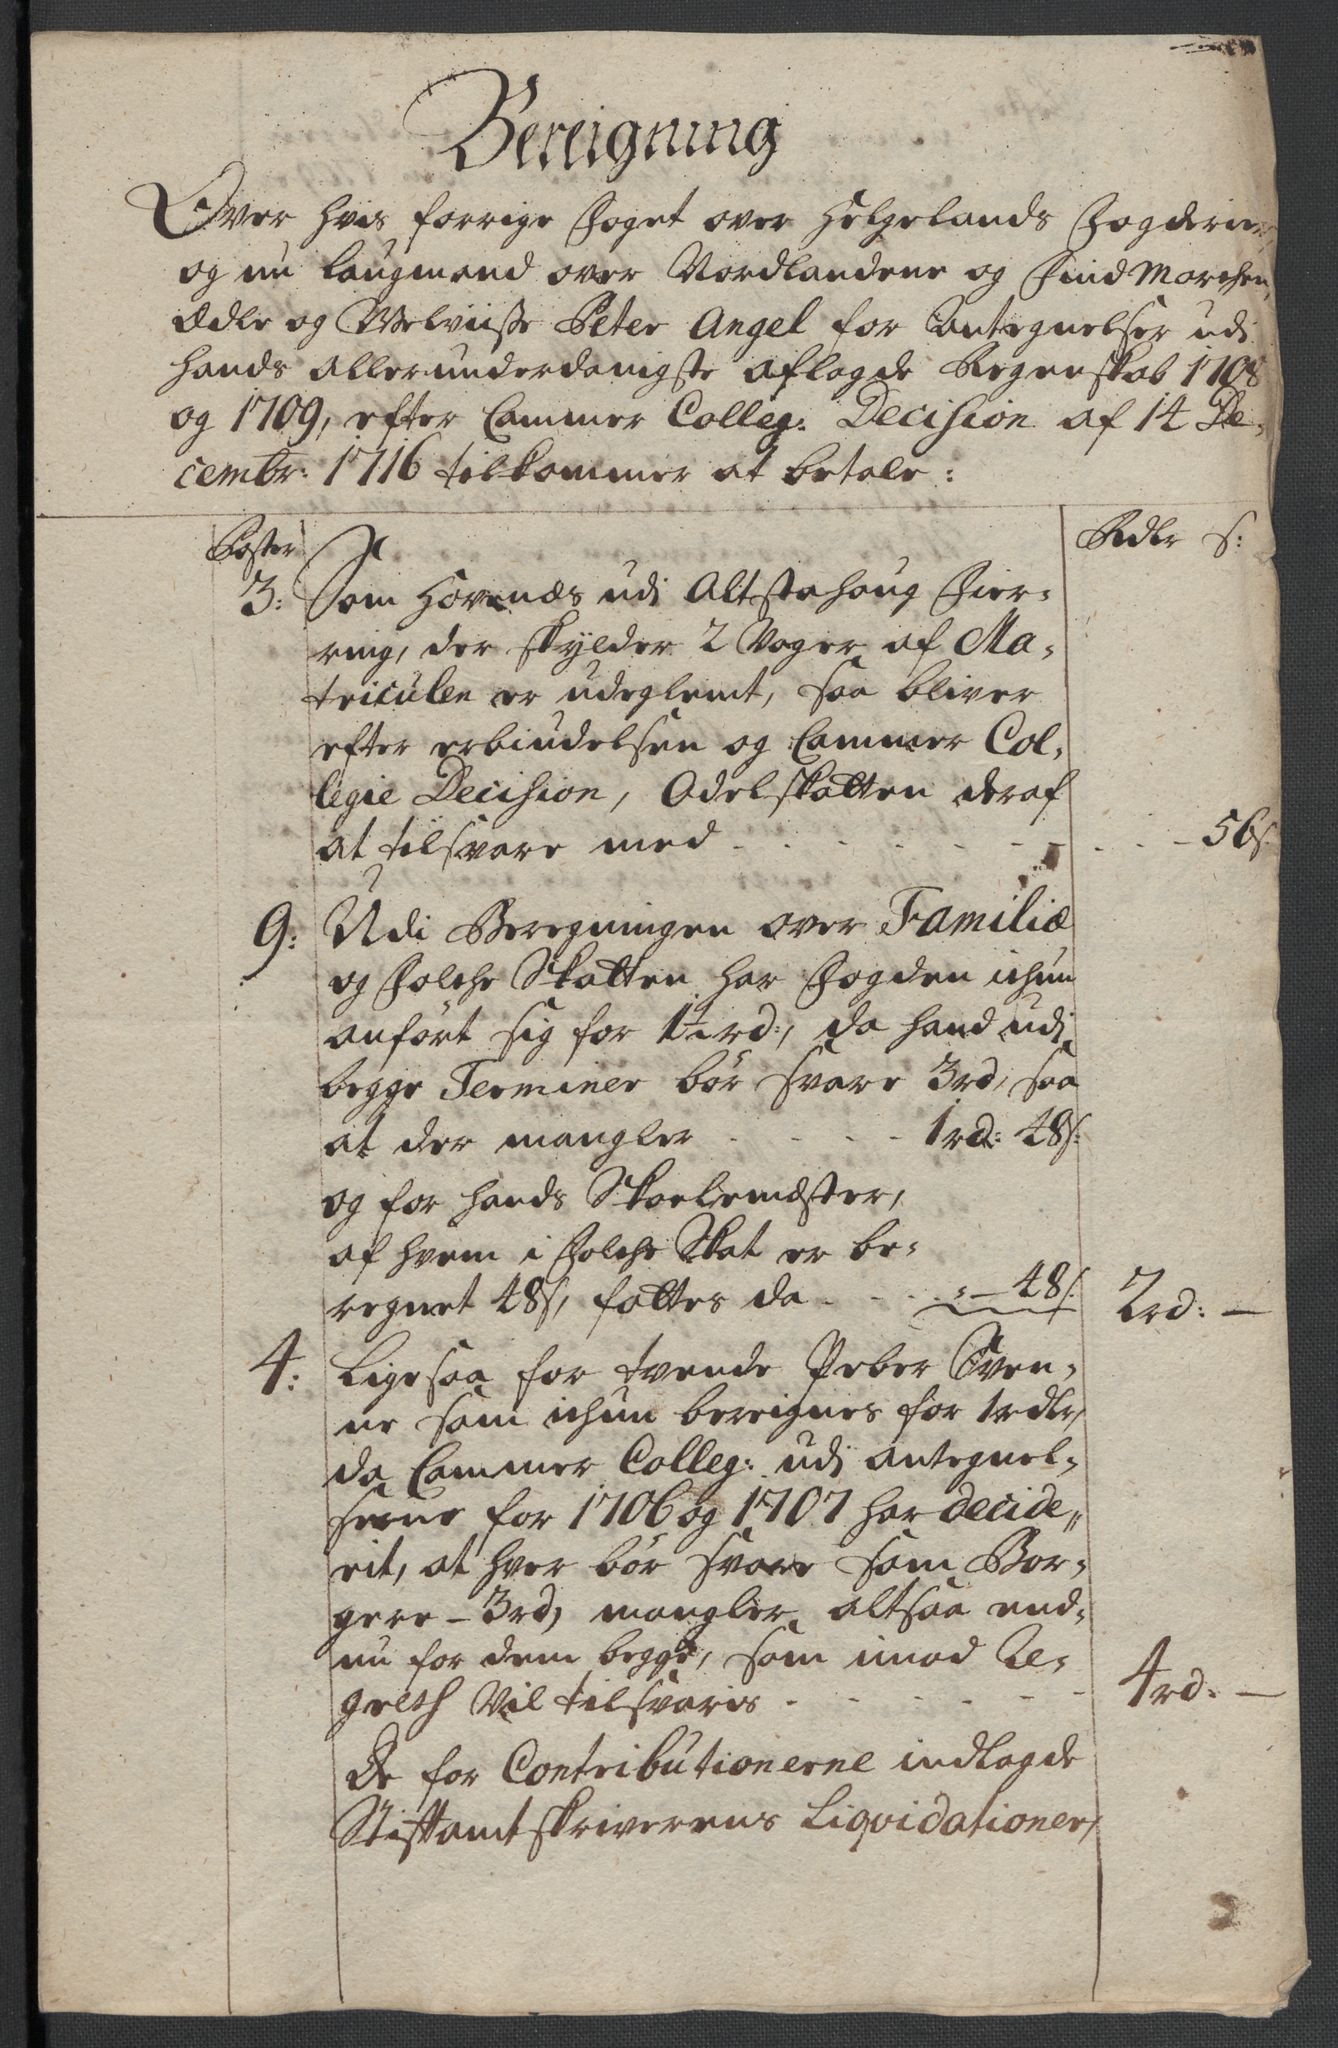 Bereigning
Over hvis forrige Foget over Helgelands Fogderie,
og nu Laugmand over Nordlandene og Find Marchen,
Ædle og Welviisse Peter Angel for Antegnelser udi
hands allerunderdanigste aflagde Regenskab 1708
og 1709, efter Cammer Colleg: Decision af 14 De-
cembr: 1716 tilkommer at betale:
Poster
Rdlr s:
3: Som Hovenæs udi Altstahoug Fier-
ring, der skylder 2 Voger af Ma-
triculen er udeglemt, saa bliver
efter erbiudelsen og Cammer Col-
legie Decision, Odelskatten deraf
at tilsvare med - - - - - - - - 56s.
9: Udi Beregningen over Familiæ
og Folche Skatten har Fogden ichun
anført sig for 1½ rd:, da hand udi
begge Terminer bør svare 3rd, saa
at der mangler - - - - 1rd: 48s:
og for hands Skoelemæster,
af hvem i Folche Skat er be-
regnet 48s, fattes da - - - : - 48s. 2rd: —
4: Ligesaa for tvende Peber Sven-
ne som ichun bereignes for 1rdlr,
da Cammer Colleg: udi antegnel-
serne for 1706 og 1707 har decide-
rit, at hver bør svare som Bor-
gere - 3rd, mangler altsaa end-
nu for dem begge, som imod Re-
greth Vil tilsvaris - - - - - - 4rd: —
De for Contributionerne indlagde
Stiftamtskriverens Liqvidationer,